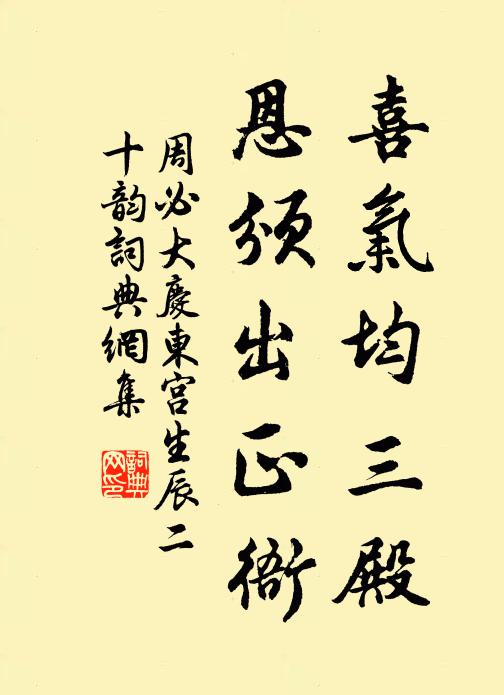 喜氣均三殿
恩頒出正衙
周必大慶東宮生辰二
十韵詞典網集
詞典
网印